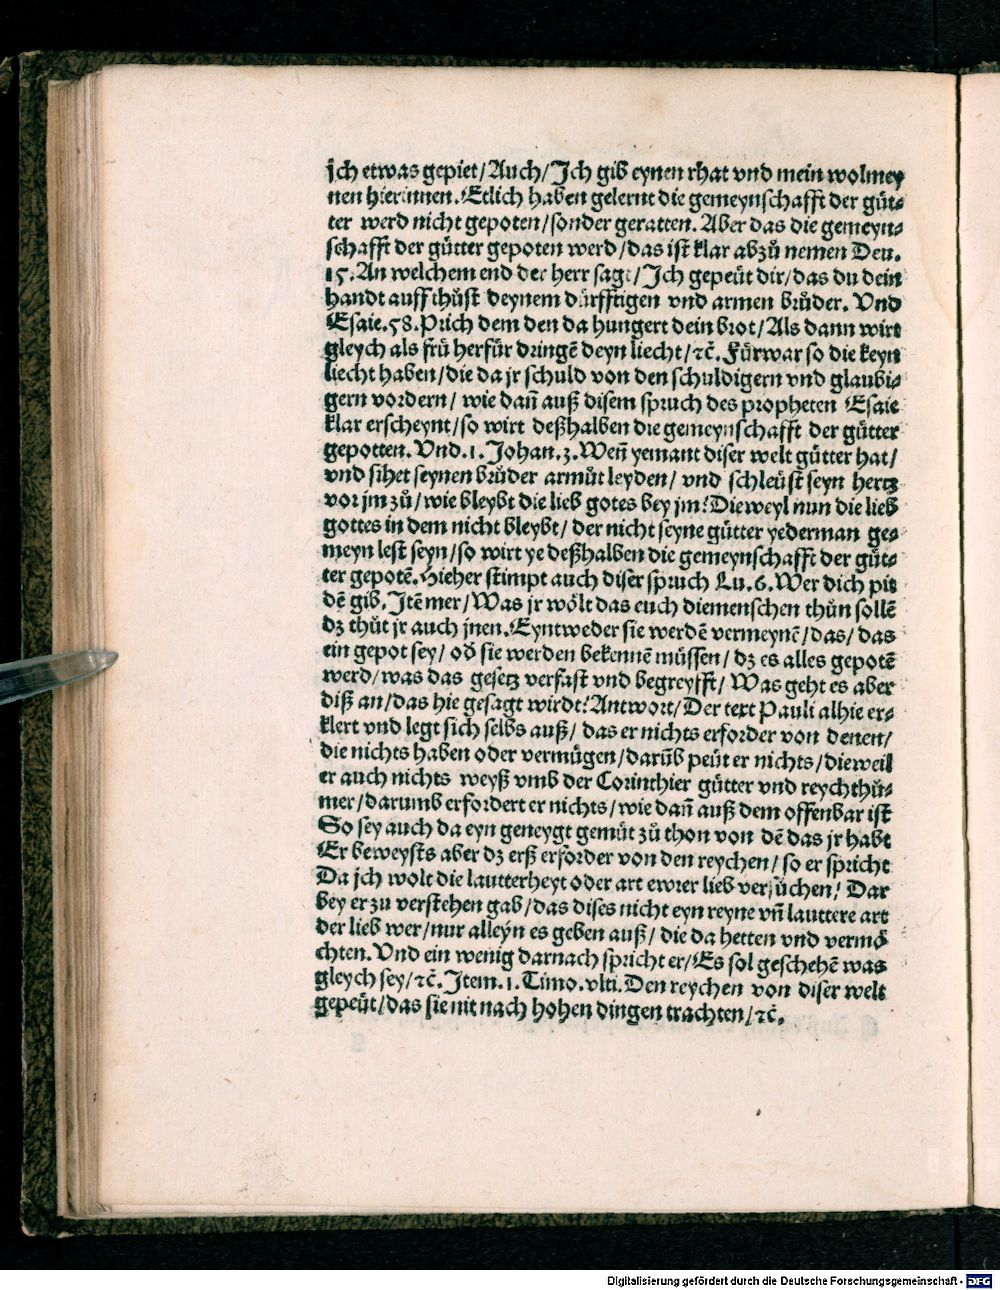 jch etwas gepiet/Auch/Jch gib eynen rhat vnd mein wolmey
nen hierinnen. Etlich haben gelernt die gemeynschafft der guͤt⸗
ter werd nicht gepoten/sonder geratten. Aber das die gemeyn⸗
schafft der guͤtter gepoten werd/das ist klar abzuͦ nemen Deu.
15. An welchem end der herr sagt/Jch gepeuͤt dir/das du dein
handt auff thuͦst deynem duͤrfftigen vnd armen bruͦder. Vnd
Esaie. 58. Prich dem den da hungert dein brot/Als dann wirt
gleych als fruͤ herfuͤr dringē deyn liecht/ꝛc̄. Fuͤrwar so die keyn
liecht haben/die da jr schuld von den schuldigern vnd glaubi⸗
gern vordern/ wie dañ auß disem spruch des propheten Esaie
klar erscheynt/so wirt deßhalben die gemeynschafft der guͤtter
gepotten. Vnd. 1. Johan. 3. Weñ yemant diser welt guͤtter hat/
vnd sihet seynen bruͦder armuͦt leyden/ vnd schleuͤst seyn hertz
vor jm zuͦ/wie bleybt die lieb gotes bey jm? Dieweyl nun die lieb
gottes in dem nicht bleybt/ der nicht seyne guͤtter yederman ge⸗
meyn lest seyn/so wirt ye deßhalben die gemeynschafft der guͤt⸗
ter gepotē. Hieher stimpt auch diser spruch Lu. 6. Wer dich pit
dē gib. Jtē mer/Was jr woͤlt das euch diemenschen thuͦn sollē
dz thuͦt jr auch jnen. Eyntweder sie werdē vermeynē/das/das
ein gepot sey/ od̄ sie werden bekennē muͤssen/ dz es alles gepotē
werd/was das gesetz verfast vnd begreyfft/ Was geht es aber
diß an/das hie gesagt wirdt? Antwort/Der text Pauli alhie er⸗
klert vnd legt sich selbs auß/ das er nichts erforder von denen/
die nichts haben oder vermuͤgen/darūb peuͤt er nichts/dieweil
er auch nichts weyß vmb der Corinthier guͤtter vnd reychthuͦ⸗
mer/darumb erfordert er nichts/wie dañ auß dem offenbar ist
So sey auch da eyn geneygt gemuͤt zuͦ thon von dē das jr habt
Er beweysts aber dz erß erforder von den reychen/so er spricht
Da jch wolt die lautterheyt oder art ewrer lieb versuͦchen/ Dar
bey er zu verstehen gab/das dises nicht eyn reyne vñ lauttere art
der lieb wer/nur alleyn es geben auß/ die da hetten vnd vermoͤ
chten. Vnd ein wenig darnach spricht er/Es sol geschehē was
gleych sey/ꝛc̄. Jtem. 1. Timo. vlti. Den reychen von diser welt
gepeuͤt/das sie nit nach hohen dingen trachten/ꝛc̄.
Digitalisierung gefördert durch die Deutsche Forschungsgemeinschaft - DFG